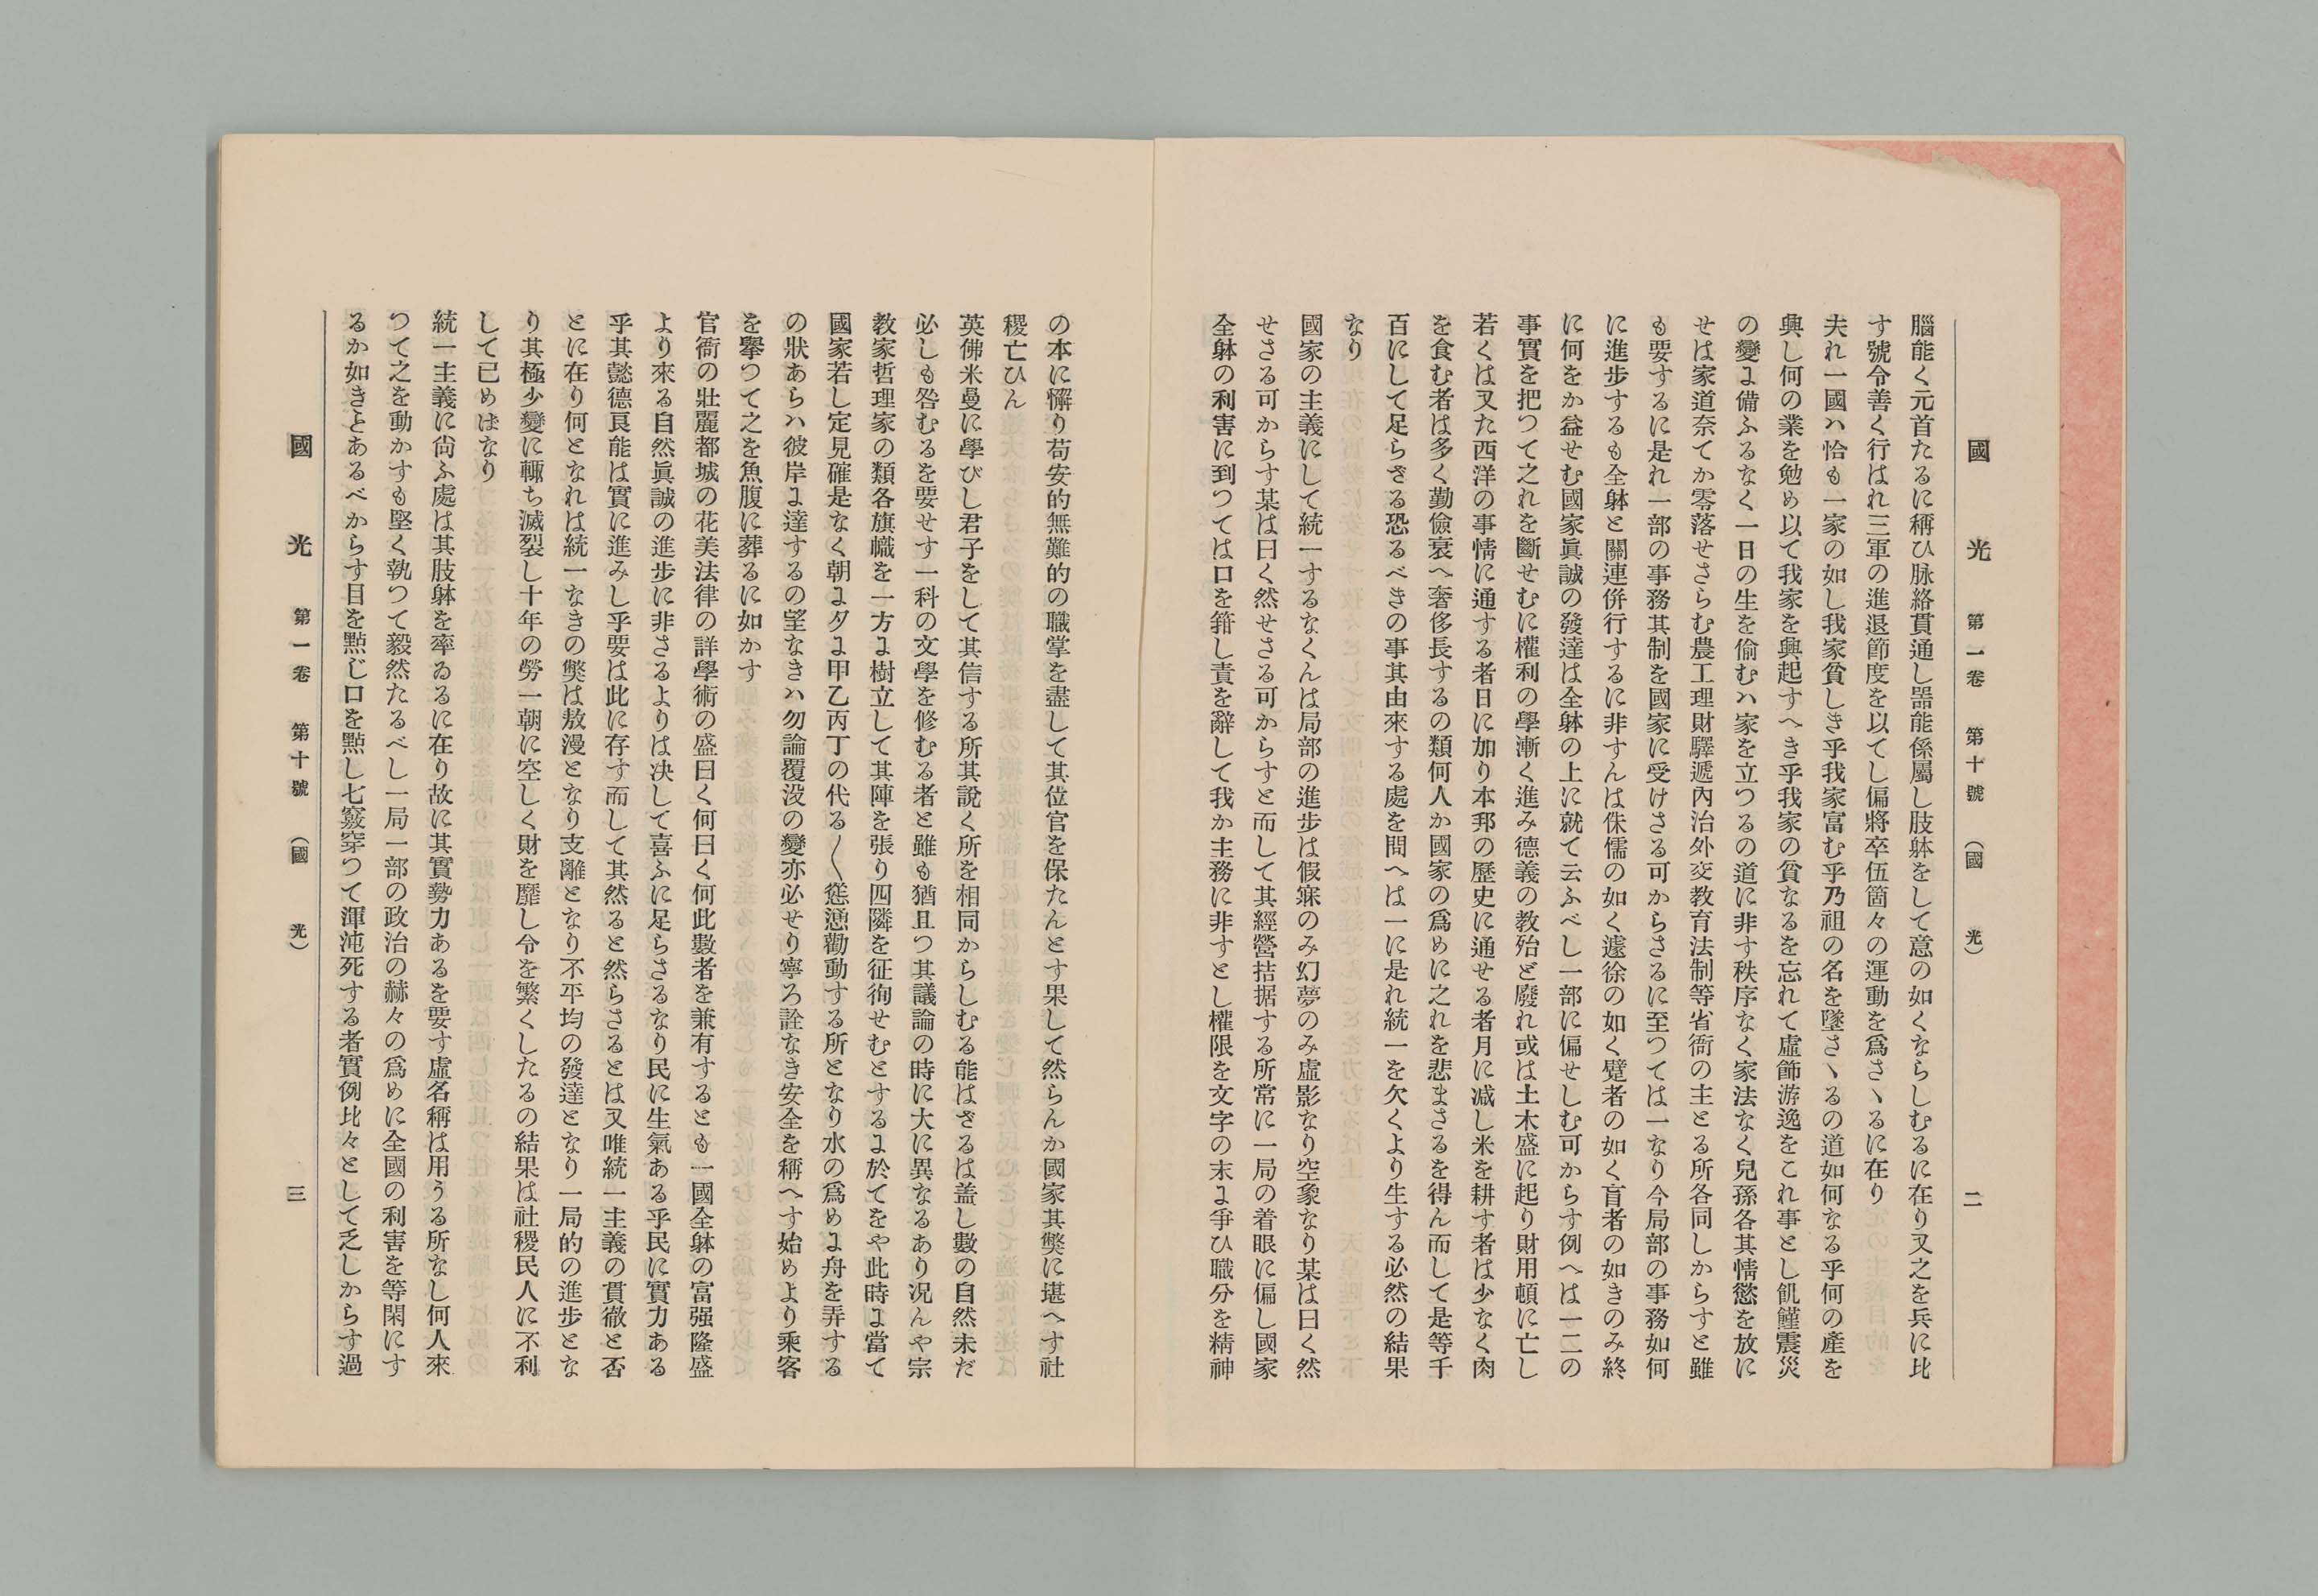 國光 第一卷 第十號 (國光) 二
腦能く元首たるに稱ひ脉絡貫通し器能係屬し肢躰をして意の如くならしむるに在り又之を兵に比
す號令善く行はれ三軍の進退節度を以てし偏將卒伍箇々の運動を爲さヽるに在り
夫れ一國ハ恰も一家の如し我家貧しき乎我家富む乎乃祖の名を墜さヽるの道如何なる乎何の產を
興し何の業を勉め以て我家を興起すへき乎我家の貧なるを忘れて虛飾游逸をこれ事とし飢饉震災
の變に備ふるなく一日の生を偷むハ家を立つるの道に非す秩序なく家法なく兒孫各其情慾を放に
せは家道奈てか零落せさらむ農工理財驛遞內治外交教育法制等省衙の主とる所各同しからすと雖
も要するに是れ一部の事務其制を國家に受けさる可からさるに至つては一なり今局部の事務如何
に進步するも全躰と關連併行するに非すんは侏儒の如く蘧徐の如く躄者の如く盲者の如きのみ終
に何をか益せむ國家眞誠の發達は全躰の上に就て云ふべし一部に偏せしむ可からす例へは一二の
事實を把つて之れを斷せむに權利の學漸く進み德義の教殆ど廢れ或は土木盛に起り財用頓に亡し
若くは又た西洋の事情に通する者日に加り本邦の歷史に通せる者月に减し米を耕す者は少なく肉
を食む者は多く勤儉衰へ奢侈長するの類何人か國家の爲めに之れを悲まさるを得ん而して是等千
百にして足らざる恐るべきの事其由來する處を問へは一に是れ統一を欠くより生する必然の結果
なり
國家の主義にして統一するなくんは局部の進步は假寐のみ幻夢のみ虛影なり空象なり某は曰く然
せさる可からす某は曰く然せさる可からすと而して其經營拮据する所常に一局の着眼に偏し國家
全躰の利害に到つては口を箝し責を辭して我か主務に非すとし權限を文字の末に爭ひ職分を精神
の本に懈り苟安的無難的の職掌を盡して其位官を保たんとす果して然らんか國家其獘に堪へす社
稷亡ひん
英佛米曼に學びし君子をして其信する所其說く所を相同からしむる能はざるは盖し數の自然未だ
必しも咎むるを要せす一科の文學を修むる者と雖も猶且つ其議論の時に大に異なるあり况んや宗
教家哲理家の類各旗幟を一方に樹立して其陣を張り四隣を征徇せむとするに於てをや此時に當て
國家若し定見確是なく朝に夕に甲乙丙丁の代る〱慫慂勸動する所となり水の爲めに舟を弄する
の狀あらハ彼岸に達するの望なきハ勿論覆没の變亦必せり寧ろ詮なき安全を稱へす始めより乘客
を擧つて之を魚腹に葬るに如かす
官衙の壯麗都城の花美法律の詳學術の盛曰く何曰く何此數者を兼有するとも一國全躰の富强隆盛
より來る自然眞誠の進步に非さるよりは决して喜ふに足らさるなり民に生氣ある乎民に實力ある
乎其懿德良能は實に進みし乎要は此に存す而して其然ると然らさるとは又唯統一主義の貫徹と否
とに在り何となれは統一なきの獘は敖漫となり支離となり不平均の發達となり一局的の進步とな
り其極少變に輙ち滅裂し十年の勞一朝に空しく財を靡し令を繁くしたるの結果は社稷民人に不利
して已めばなり
統一主義に尙ふ處は其肢躰を率ゐるに在り故に其實勢力あるを要す虛名稱は用うる所なし何人來
つて之を動かすも堅く執つて毅然たるべし一局一部の政治の赫々の爲めに全國の利害を等閑にす
るか如きとあるべからす目を㸃じ口を㸃し七竅穿つて渾沌死する者實例比々として乏しからす過
國光 第一卷 第十號 (國光) 三